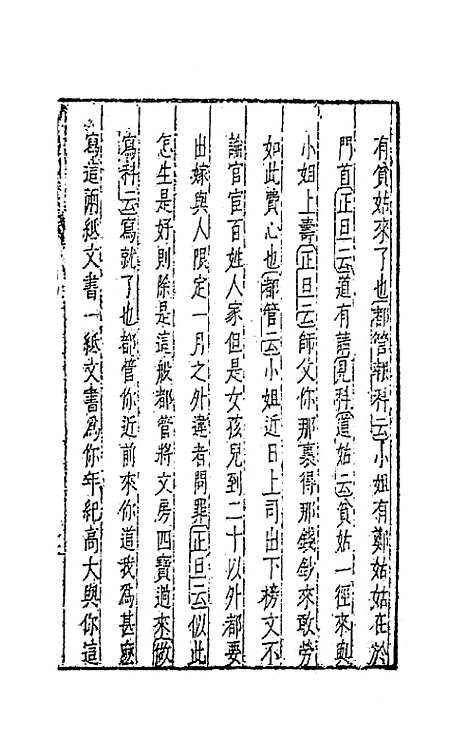 有貧姑來了也都管報科云小姐有鄭姑姑在於
門首正旦云道有請見科道姑云貧姑一徑來與
小姐上壽正旦云師父你那裏得那錢鈔來敢勞
如此費心也都管云小姐近日上司出下榜文不
論官宦百姓人家但是女孩兒到二十以外都要
出嫁與人限定一月之外違者問罪正旦云似此
怎生是好則除是這般都管將文房四寶過來做
寫科云寫就了也都管你近前來你道我為甚麽
寫這兩紙文書一紙文書為你年紀高大與你這